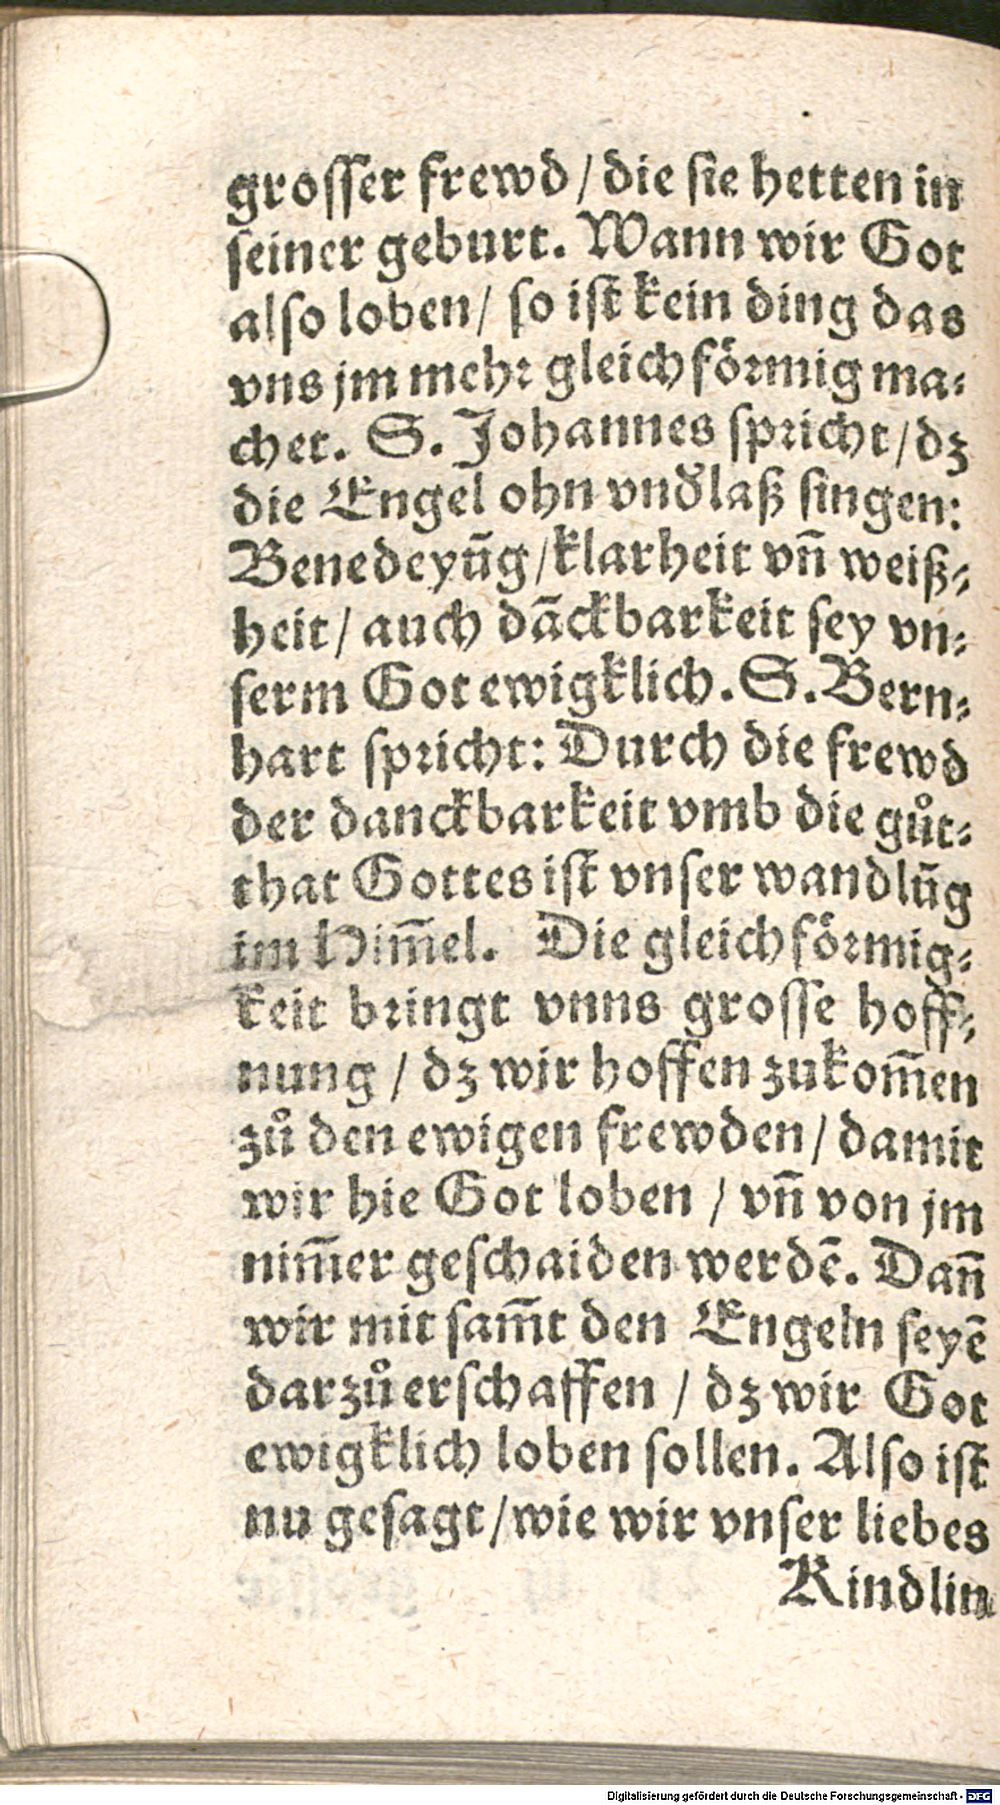 grosser frewd / die sie hetten in
seiner geburt. Wann wir Got
also loben / so ist kein ding das
vns jm mehr gleichförmig ma⸗
chet. S. Johannes spricht / dz
die Engel ohn vnd̕laß singen:
Benedeyūg / klarheit vn̄ weiß⸗
heit / auch dāckbarkeit sey vn⸗
serm Got ewigklich. S. Bern⸗
hart spricht: Durch die frewd
der danckbarkeit vmb die gůt⸗
that Gottes ist vnser wandlūg
im Him̄el. Die gleichförmig⸗
keit bringt vnns grosse hoff⸗
nung / dz wir hoffen zukom̄en
zů den ewigen frewden / damit
wir hie Got loben / vn̄ von jm
nim̄er geschaiden werdē. Dan̄
wir mit sam̄t den Engeln seyē
darzů erschaffen / dz wir Got
ewigklich loben sollen. Also ist
nu gesagt / wie wir vnser liebes
Kindlin
Digitalisierung gefördert durch die Deutsche Forschungsgemeinschaft - DFG